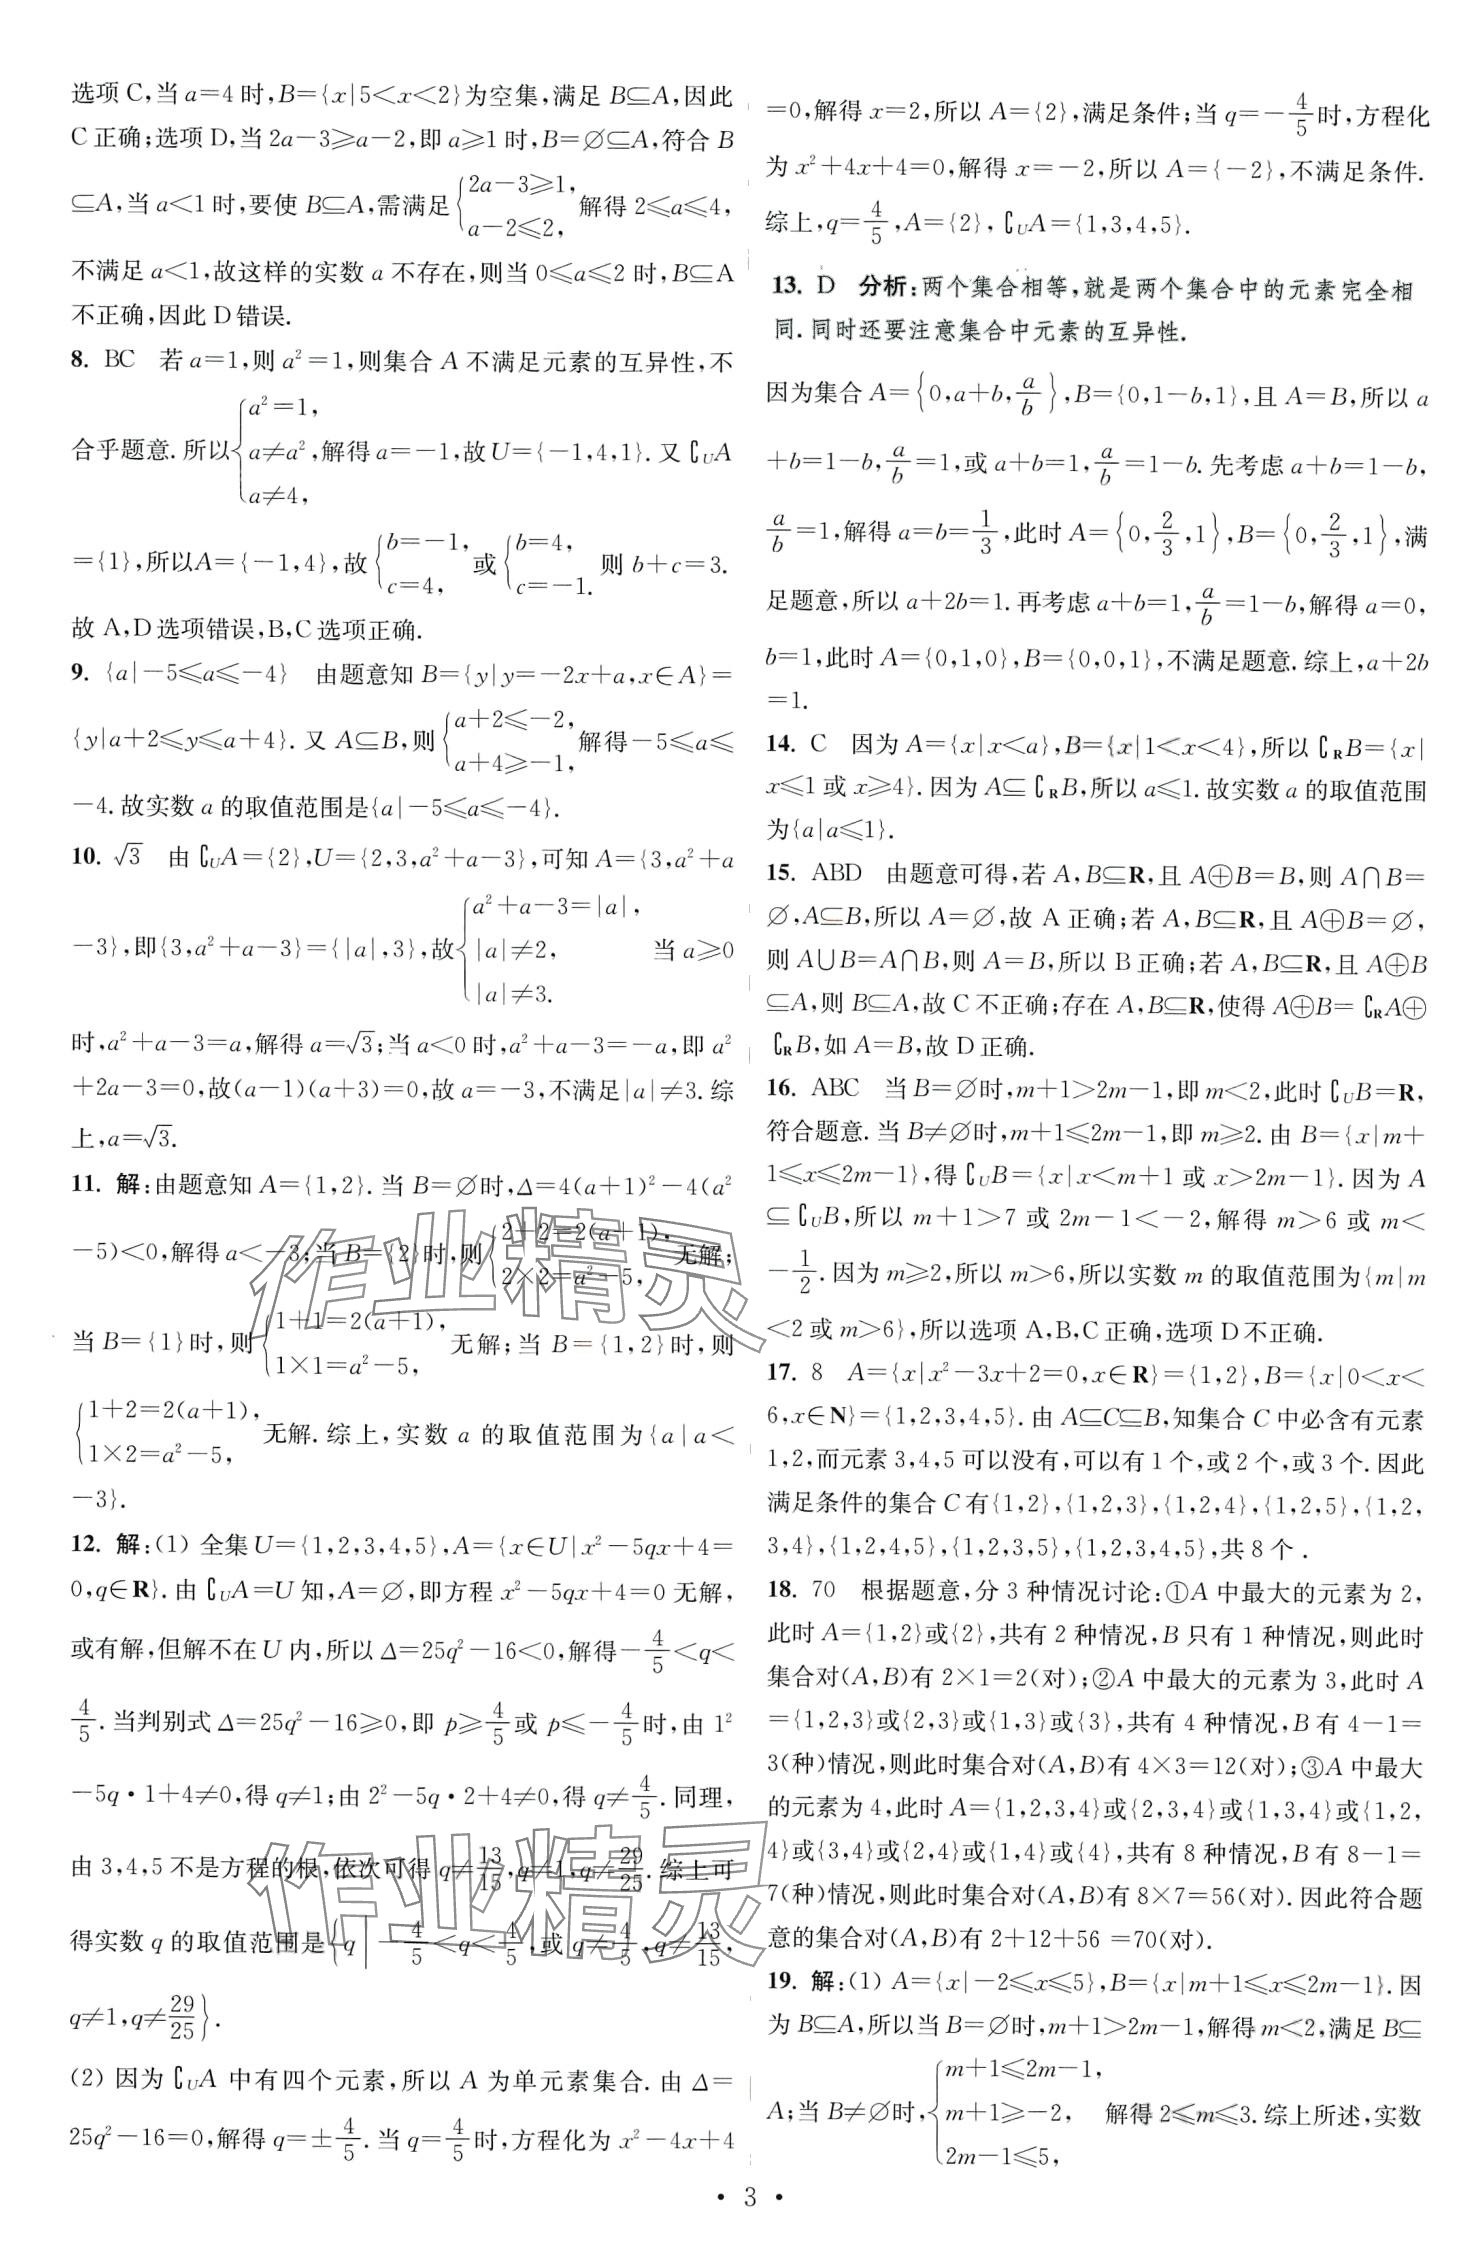 选项C,当a=4时,B={x|5<x<2}为空集,满足B⊆A,因此
C正确;选项D,当2a-3≥a-2,即a≥1时,B=∅⊆A,符合B
⊆A,当a<1时,要使B⊆A,需满足{2a-3≥1, a-2≤2, 解得2≤a≤4,
不满足a<1,故这样的实数a不存在,则当0≤a≤2时,B⊆A
不正确,因此D错误.
8. BC 若a=1,则a²=1,则集合A不满足元素的互异性,不
合乎题意.所以{a²=1, a≠a², a≠4, 解得a=-1,故U={-1,4,1}.又∁UA
={1},所以A={-1,4},故{b=-1, c=4, 或{b=4, c=-1. 则b+c=3.
故A,D选项错误,B,C选项正确.
9. {a|-5≤a≤-4} 由题意知B={y|y=-2x+a,x∈A}=
{y|a+2≤y≤a+4}.又A⊆B,则{a+2≤-2, a+4≥-1, 解得-5≤a≤
-4.故实数a的取值范围是{a|-5≤a≤-4}.
10. √3 由∁UA={2},U={2,3,a²+a-3},可知A={3,a²+a
-3},即{3,a²+a-3}={|a|,3},故{a²+a-3=|a|, |a|≠2, |a|≠3. 当a≥0
时,a²+a-3=a,解得a=√3;当a<0时,a²+a-3=-a,即a²
+2a-3=0,故(a-1)(a+3)=0,故a=-3,不满足|a|≠3.综
上,a=√3.
11. 解:由题意知A={1,2}.当B=∅时,Δ=4(a+1)²-4(a²
-5)<0,解得a<-3;当B={2}时,则{2+2=2(a+1), 2×2=a²-5, 无解;
当B={1}时,则{1+1=2(a+1), 1×1=a²-5, 无解;当B={1,2}时,则
{1+2=2(a+1), 1×2=a²-5, 无解.综上,实数a的取值范围为{a|a<
-3}.
12. 解:(1) 全集U={1,2,3,4,5},A={x∈U|x²-5qx+4=
0,q∈R}.由∁UA=U知,A=∅,即方程x²-5qx+4=0无解,
或有解,但解不在U内,所以Δ=25q²-16<0,解得-4/5<q<
4/5.当判别式Δ=25q²-16≥0,即p≥4/5或p≤-4/5时,由1²
-5q·1+4≠0,得q≠1;由2²-5q·2+4≠0,得q≠4/5.同理,
由3,4,5不是方程的根,依次可得q≠13/15,q≠1,q≠29/25.综上可
得实数q的取值范围是{q|-4/5<q<4/5,或q≠4/5,q≠13/15,
q≠1,q≠29/25}.
(2) 因为∁UA中有四个元素,所以A为单元素集合.由Δ=
25q²-16=0,解得q=±4/5.当q=4/5时,方程化为x²-4x+4
=0,解得x=2,所以A={2},满足条件;当q=-4/5时,方程化
为x²+4x+4=0,解得x=-2,所以A={-2},不满足条件.
综上,q=4/5,A={2},∁UA={1,3,4,5}.
13. D 分析:两个集合相等,就是两个集合中的元素完全相
同.同时还要注意集合中元素的互异性.
因为集合A={0,a+b,a/b},B={0,1-b,1},且A=B,所以a
+b=1-b,a/b=1,或a+b=1,a/b=1-b.先考虑a+b=1-b,
a/b=1,解得a=b=1/3,此时A={0,2/3,1},B={0,2/3,1},满
足题意,所以a+2b=1.再考虑a+b=1,a/b=1-b,解得a=0,
b=1,此时A={0,1,0},B={0,0,1},不满足题意.综上,a+2b
=1.
14. C 因为A={x|x<a},B={x|1<x<4},所以∁RB={x|
x≤1或x≥4}.因为A⊆∁RB,所以a≤1.故实数a的取值范围
为{a|a≤1}.
15. ABD 由题意可得,若A,B⊆R,且A⊕B=B,则A∩B=
∅,A⊆B,所以A=∅,故A正确;若A,B⊆R,且A⊕B=∅,
则A∪B=A∩B,则A=B,所以B正确;若A,B⊆R,且A⊕B
⊆A,则B⊆A,故C不正确;存在A,B⊆R,使得A⊕B=∁RA⊕
∁RB,如A=B,故D正确.
16. ABC 当B=∅时,m+1>2m-1,即m<2,此时∁UB=R,
符合题意.当B≠∅时,m+1≤2m-1,即m≥2.由B={x|m+
1≤x≤2m-1},得∁UB={x|x<m+1或x>2m-1}.因为A
⊆∁UB,所以m+1>7或2m-1<-2,解得m>6或m<
-1/2.因为m≥2,所以m>6,所以实数m的取值范围为{m|m
<2或m>6},所以选项A,B,C正确,选项D不正确.
17. 8 A={x|x²-3x+2=0,x∈R}={1,2},B={x|0<x<
6,x∈N}={1,2,3,4,5}.由A⊆C⊆B,知集合C中必含有元素
1,2,而元素3,4,5可以没有,可以有1个,或2个,或3个.因此
满足条件的集合C有{1,2},{1,2,3},{1,2,4},{1,2,5},{1,2,
3,4},{1,2,4,5},{1,2,3,5},{1,2,3,4,5},共8个.
18. 70 根据题意,分3种情况讨论:①A中最大的元素为2,
此时A={1,2}或{2},共有2种情况,B只有1种情况,则此时
集合对(A,B)有2×1=2(对);②A中最大的元素为3,此时A
={1,2,3}或{2,3}或{1,3}或{3},共有4种情况,B有4-1=
3(种)情况,则此时集合对(A,B)有4×3=12(对);③A中最大
的元素为4,此时A={1,2,3,4}或{2,3,4}或{1,3,4}或{1,2,
4}或{3,4}或{2,4}或{1,4}或{4},共有8种情况,B有8-1=
7(种)情况,则此时集合对(A,B)有8×7=56(对).因此符合题
意的集合对(A,B)有2+12+56=70(对).
19. 解:(1) A={x|-2≤x≤5},B={x|m+1≤x≤2m-1}.因
为B⊆A,所以当B=∅时,m+1>2m-1,解得m<2,满足B⊆
A;当B≠∅时,{m+1≤2m-1, m+1≥-2, 2m-1≤5, 解得2≤m≤3.综上所述,实数
· 3 ·
作业精灵
作业精灵